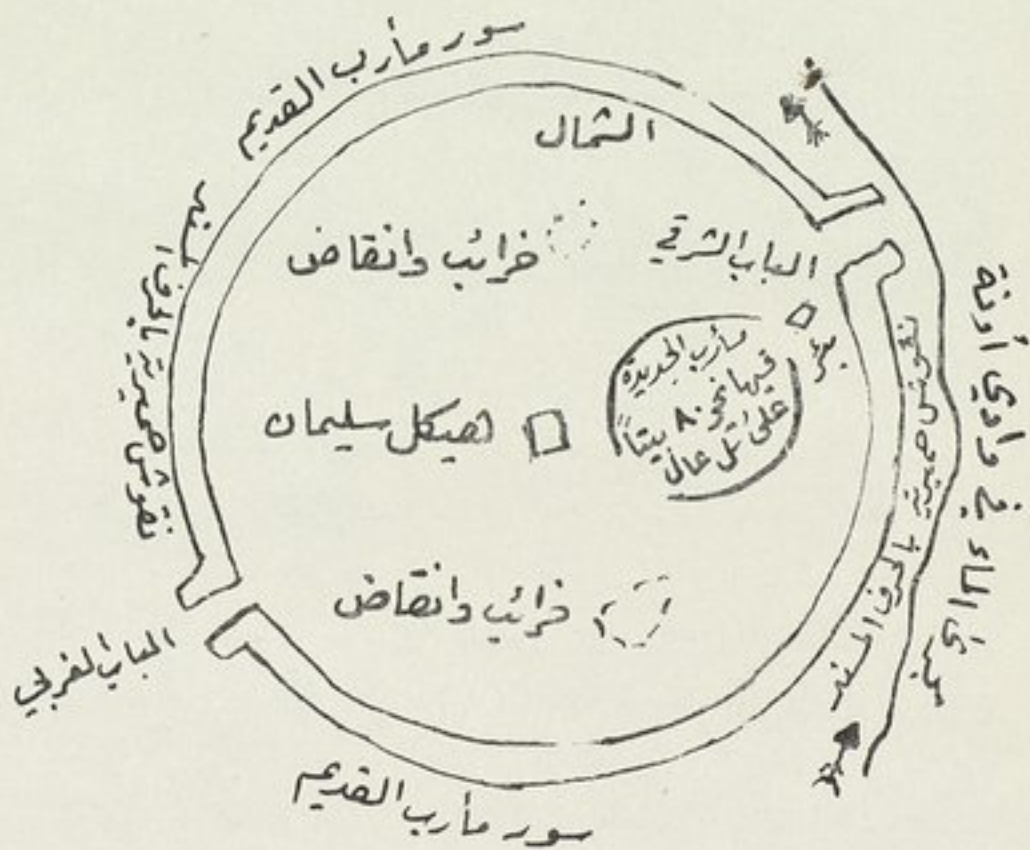 سور مأرب القديم
الشمال
خرائب وانقاض
الباب الشرقي
بئر
مأرب الجديدة
فيها نحو ٨٠ بيتاً
على تل عال
هيكل سليمان
خرائب وانقاض
الباب الغربي
سور مأرب القديم
نقوش حميرية بالحرف المسند
نقوش حميرية بالحرف المسند
مجرى الماء في وادي أدنة